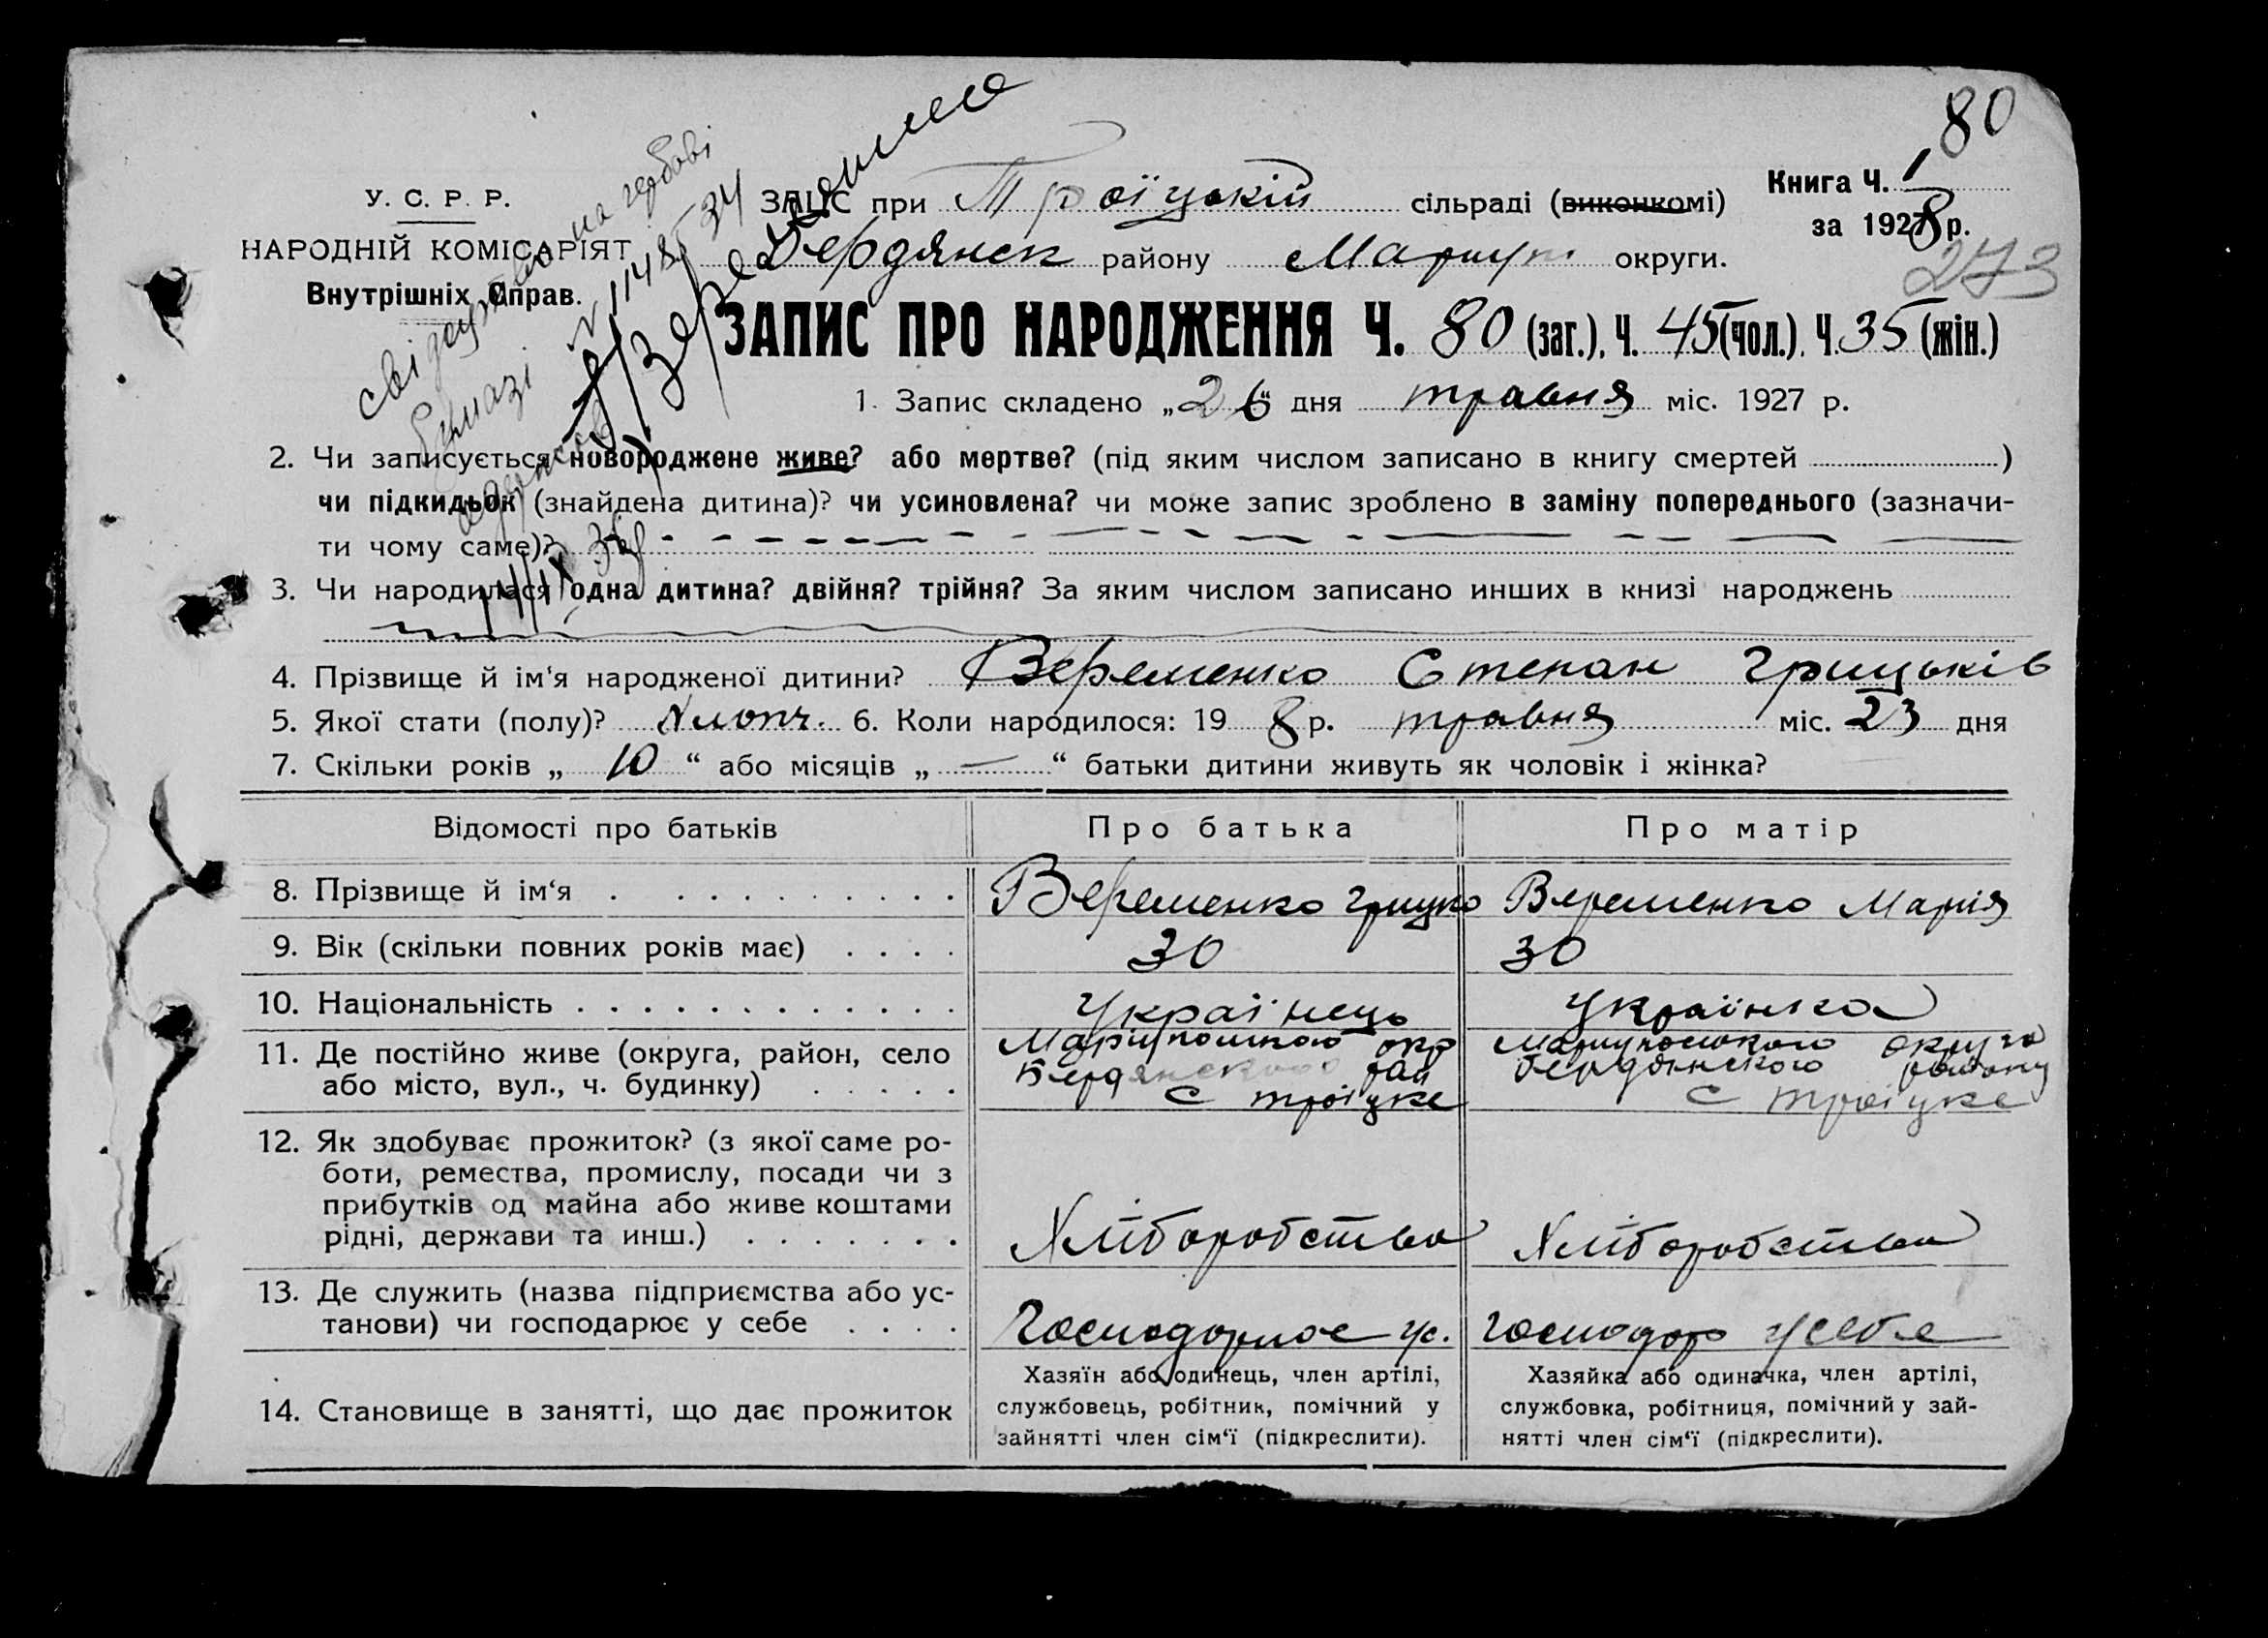 80
У. С. Р. Р.
НАРОДНІЙ КОМІСАРІЯТ
Внутрішніх Справ.
свідоцтво на гербові
бумазі N 1148534
ЗАПИС при Троїцькій сільраді (виконкомі)
Бердянск району Мариуп округи.
Книга Ч. 1
за 1928 р.
273
ЗАПИС ПРО НАРОДЖЕННЯ Ч. 80 (заг.), Ч. 45 (чол.), Ч. 35 (жін.)
1. Запис складено „26“ дня травня міс. 1927 р.
2. Чи записується новороджене живе? або мертве? (під яким числом записано в книгу смертей )
чи підкидьок (знайдена дитина)? чи усиновлена? чи може запис зроблено в заміну попереднього (зазначи-
ти чому саме)?
3. Чи народилася одна дитина? двійня? трійня? За яким числом записано инших в книзі народжень
4. Прізвище й ім‘я народженої дитини? Веременко Степан Грицьків
5. Якої стати (полу)? Хлопч. 6. Коли народилося: 19 8 р. травня міс. 23 дня
7. Скільки років „ 10 “ або місяців „ — “ батьки дитини живуть як чоловік і жінка?
Відомості про батьків Про батька Про матір
8. Прізвище й ім‘я Веременко Грицко Веременко Марія
9. Вік (скільки повних років має) 30 30
10. Національність Українець Українка
11. Де постійно живе (округа, район, село
або місто, вул., ч. будинку)
Маріупольскою окр
Бердянского рай
с Троїцке
Мариупольского округа
Бердянского району
с Троїцке
12. Як здобуває прожиток? (з якої саме ро-
боти, ремества, промислу, посади чи з
прибутків од майна або живе коштами
рідні, держави та инш.)
Хліборобство Хліборобство
13. Де служить (назва підприємства або ус-
танови) чи господарює у себе
Господарює ус. господар усебе
14. Становище в занятті, що дає прожиток
Хазяїн або одинець, член артілі,
службовець, робітник, помічний у
зайнятті член сім‘ї (підкреслити).
Хазяйка або одиначка, член артілі,
службовка, робітниця, помічний у зай-
нятті член сім‘ї (підкреслити).